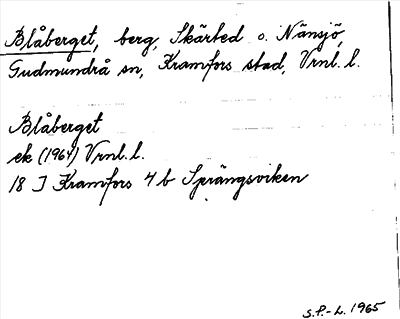 Blåberget, berg, Skärted o. Nänsjö,
Gudmundrå sn, Kramfors stad, Vrnl. l.
Blåberget
ek (1964) Vrnl. l.
18 I Kramfors 4 b Sprängsviken
S.P.-L. 1965